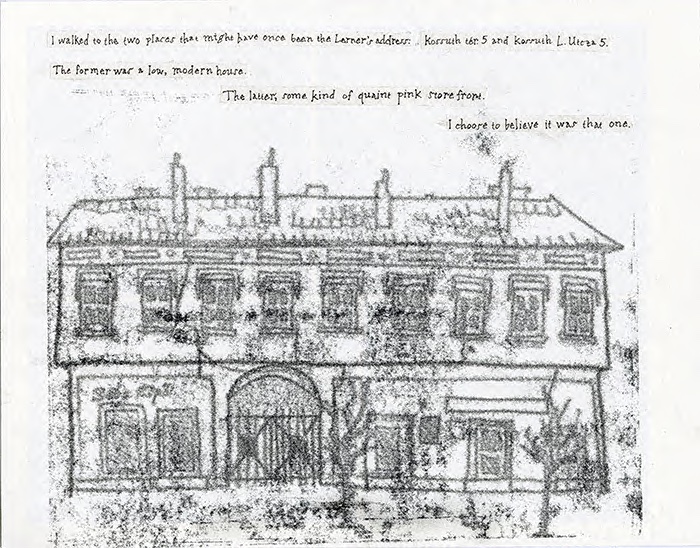 I walked to the two places that might have once been the Lerner's address: Kossuth tér. 5 and Kossuth L. Utcza 5.
The former was a low, modern house.
The latter, some kind of quaint pink storefront.
I choose to believe it was that one.